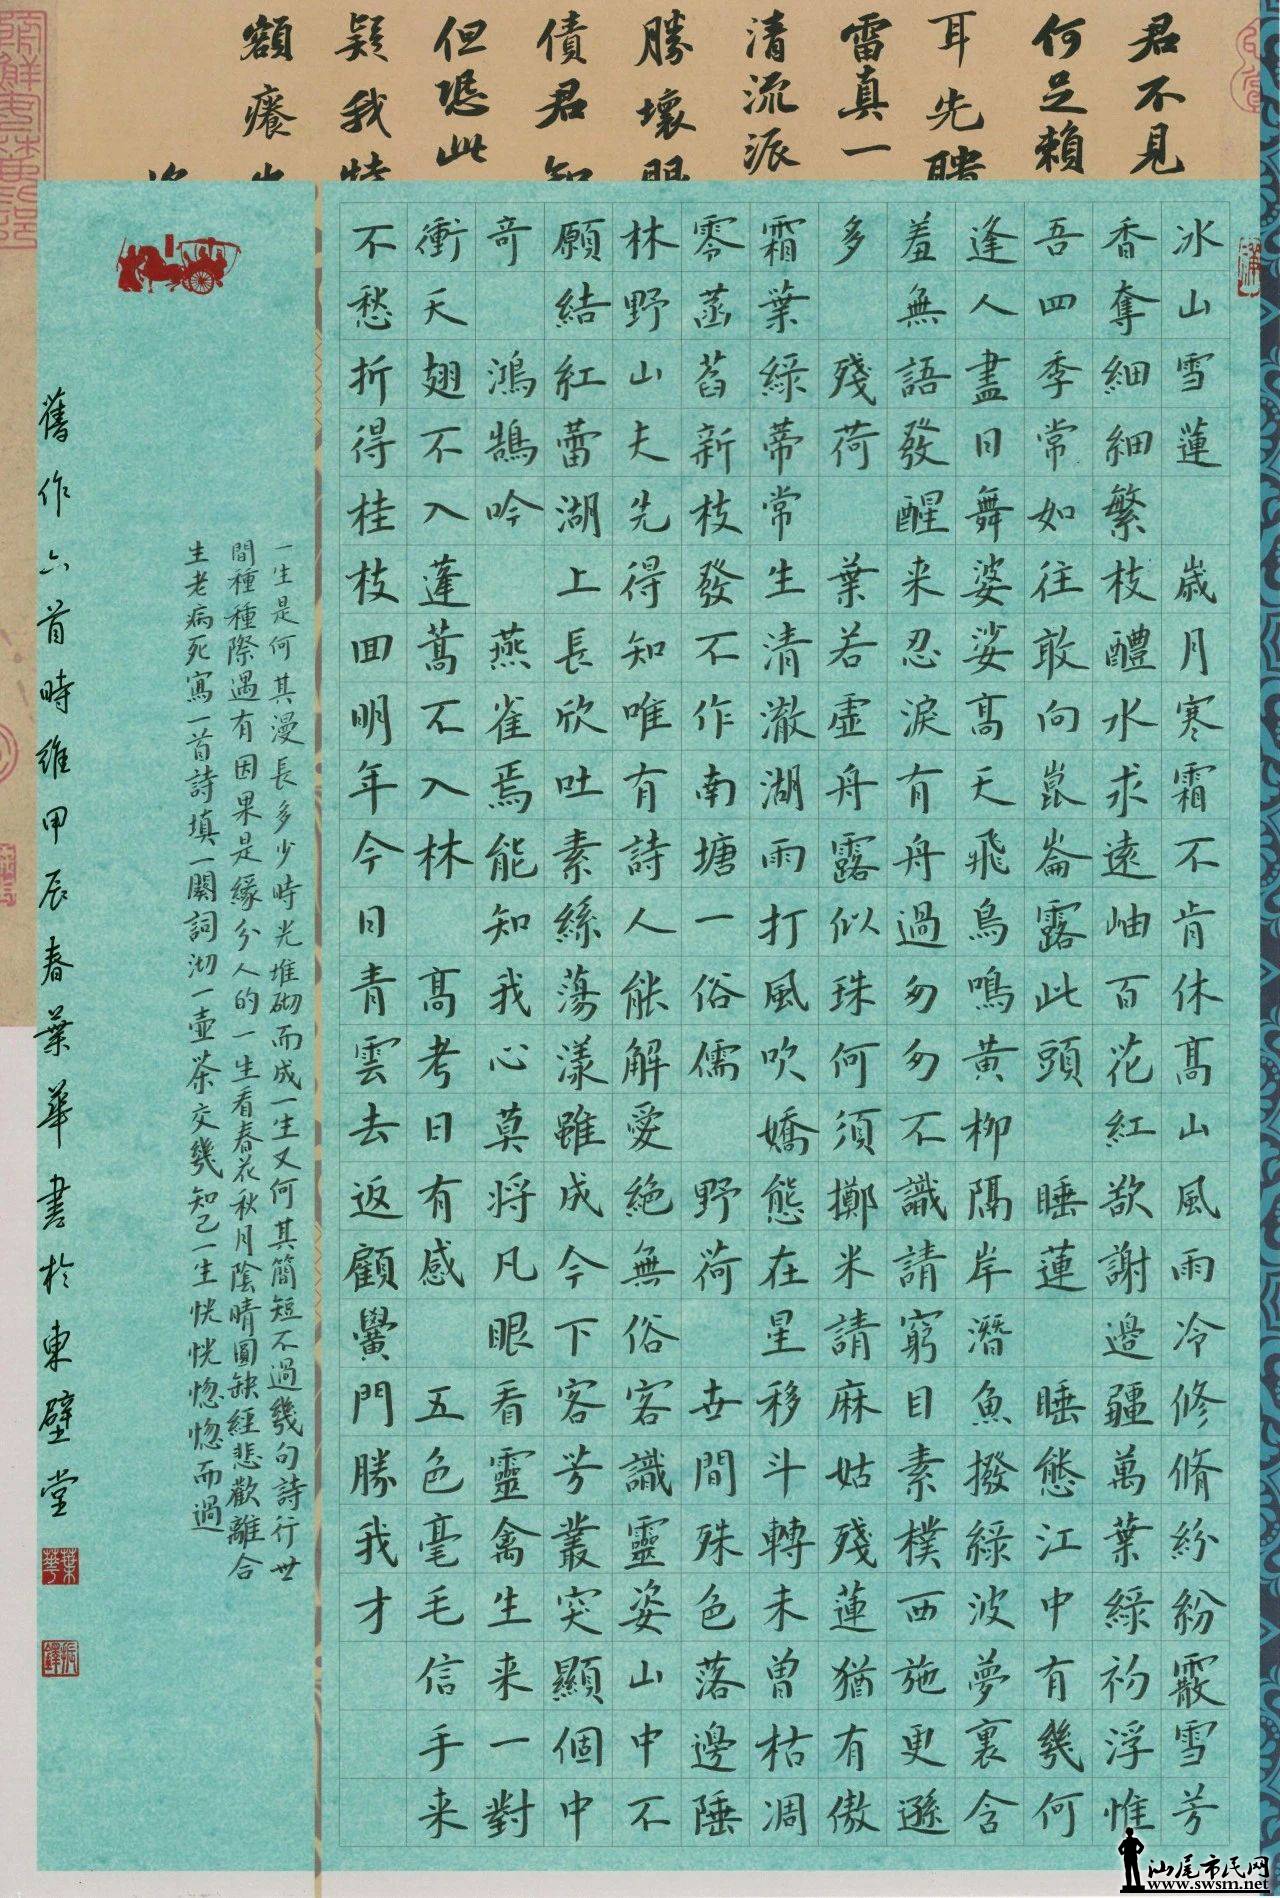 君不見
何足賴
耳先
雷真一
清流派
勝壞眼
債君知
但恐此
疑我特
額癢
冰山雪蓮 歲月寒霜不肯休高山風雨冷修脩紛紛霰雪芳
香奪細細繁枝醴水求遠岫百花紅欲謝邊疆萬葉綠初浮惟
吾四季常如往敢向崑崙露此頭 睡蓮 睡態江中有幾何
逢人盡日舞婆娑高天飛鳥鳴黃柳隔岸潛魚撥綠波夢裏含
羞無語發醒来忍淚有舟過匆匆不識請窮目素樸西施更遜
多 殘荷 葉若虛舟露似珠何須擲米請麻姑殘蓮猶有傲
霜葉綠蒂常生清澈湖雨打風吹嬌態在星移斗轉未曾枯凋
零菡萏新枝發不作南塘一俗儒 野荷 世間殊色落邊陲
林野山夫先得知唯有詩人能解愛絕無俗客識靈姿山中不
願結紅蕾湖上長欣吐素絲蕩漾雖成今下客芳叢突顯個中
奇 鴻鵠吟 燕雀焉能知我心莫将凡眼看靈禽生来一對
衝天翅不入蓬蒿不入林 高考日有感 五色毫毛信手来
不愁折得桂枝回明年今日青雲去返顧黌門勝我才
一生是何其漫長多少時光堆砌而成一生又何其簡短不過幾句詩行世
間種種際遇有因果是緣分人的一生看春花秋月陰晴圓缺經悲歡離合
生老病死寫一首詩填一闋詞沏一壺茶交幾知己一生恍恍惚惚而過
舊作六首時維甲辰春葉華書於東壁堂
葉華
振鐸
汕尾市民网
www.swsm.net